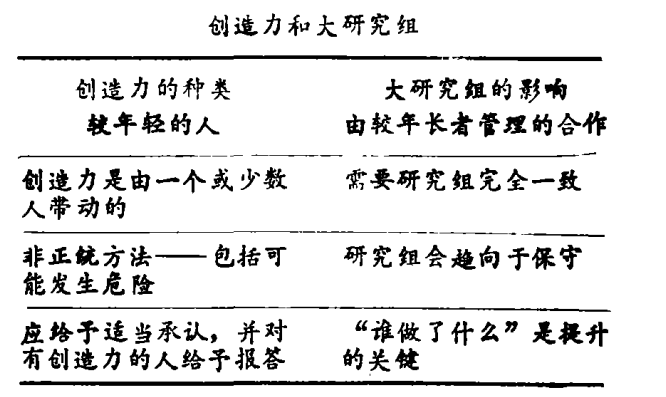 创造力和大研究组
创造力的种类 大研究组的影响
较年轻的人 由较年长者管理的合作
创造力是由一个或少数 需要研究组完全一致
人带动的
非正统方法——包括可 研究组会趋向于保守
能发生危险
应给予适当承认，并对 “谁做了什么”是提升
有创造力的人给予报答 的关键